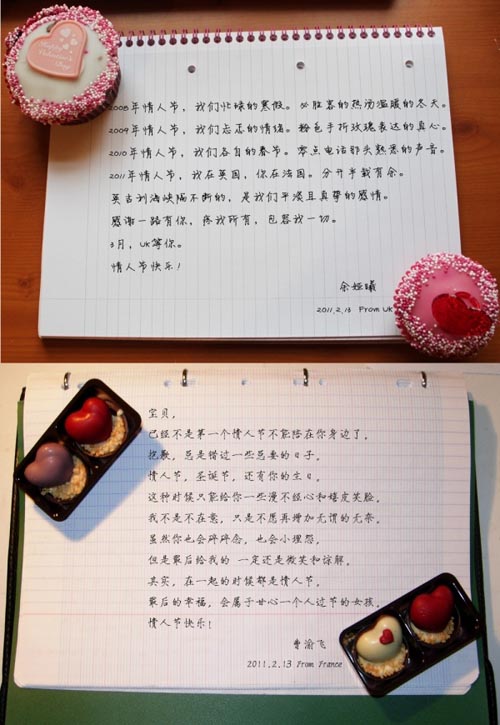 Happy
Valentine's
Day
2008年情人节，我们忙碌的寒假。必胜客的热汤温暖的冬天。
2009年情人节，我们忐忑的情绪。粉色手折玫瑰表达的真心。
2010年情人节，我们各自的春节。零点电话那头熟悉的声音。
2011年情人节，我在英国，你在法国。分开半载有余。
英吉利海峡隔不断的，是我们平淡且真挚的感情。
感谢一路有你，疼我所有，包容我一切。
3月，UK等你。
情人节快乐！
余娅曦
2011.2.13 From UK
宝贝，
已经不是第一个情人节不能陪在你身边了，
抱歉，总是错过一些重要的日子。
情人节，圣诞节，还有你的生日。
这种时候只能给你一些漫不经心和嬉皮笑脸，
我不是不在意，只是不愿再增加无谓的无奈。
虽然你也会碎碎念，也会小埋怨，
但是最后给我的 一定还是微笑和谅解。
其实，在一起的时候都是情人节，
最后的幸福，会属于甘心一个人过节的女孩。
情人节快乐！
曹渝飞
2011.2.13 From France